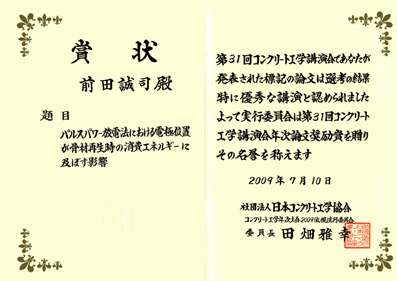 賞状
前田誠司殿
題目
パルスパワー放電法における電極位置
が骨材再生時の消費エネルギーに
及ぼす影響
第31回コンクリート工学講演会であなたが
発表された標記の論文は選考の結果
特に優秀な講演と認められました
よって実行委員会は第31回コンクリート
工学講演会年次論文奨励賞を贈り
その名誉を称えます
2009年7月10日
社団法人日本コンクリート工学協会
コンクリート工学年次大会2009(札幌)実行委員会
委員長 田畑雅幸